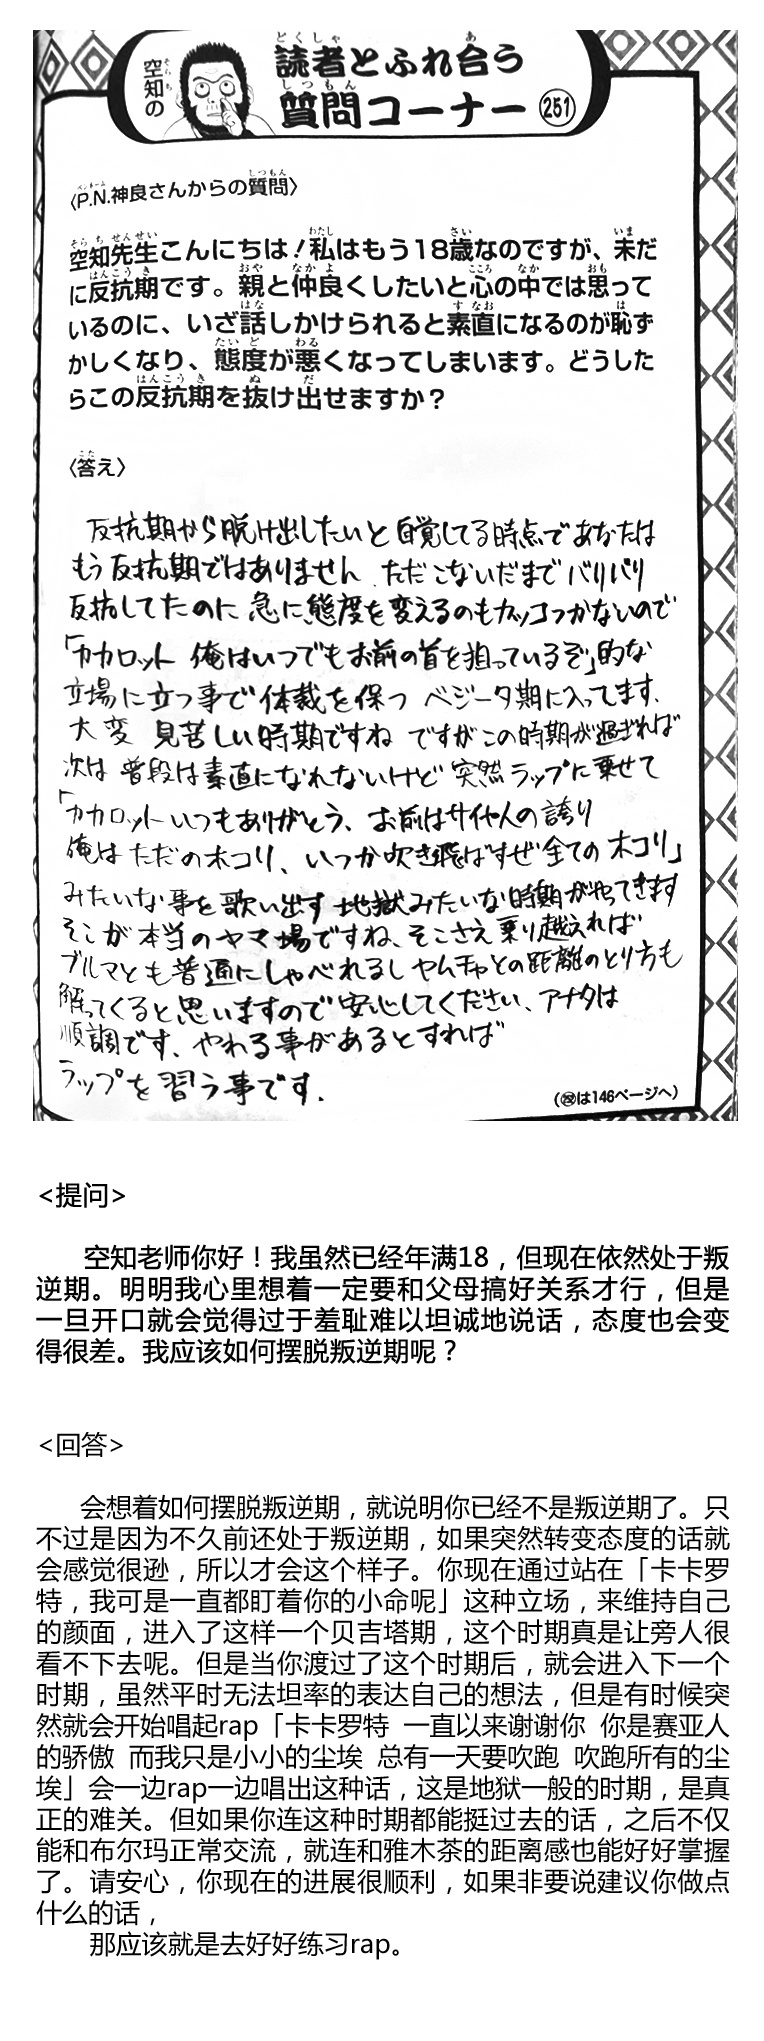 空知の
読者とふれ合う
質問コーナー 251
〈P.N.神良さんからの質問〉
空知先生こんにちは!私はもう18歳なのですが、未だ
に反抗期です。親と仲良くしたいと心の中では思って
いるのに、いざ話しかけられると素直になるのが恥ず
かしくなり、態度が悪くなってしまいます。どうした
らこの反抗期を抜け出せますか?
〈答え〉
反抗期から脱け出したいと自覚してる時点であなたは
もう反抗期ではありません、ただこないだまでバリバリ
反抗してたのに急に態度を変えるのもカッコつかないので
「カカロット 俺はいつでもお前の首を狙っているぞ」的な
立場に立つ事で体裁を保つ ベジータ期に入ってます、
大変 見苦しい時期ですね ですがこの時期が過ぎれば
次は 普段は素直になれないけど 突然ラップに乗せて
「カカロットいつもありがとう、お前はサイヤ人の誇り
俺はただのホコリ、いつか吹き飛ばすぜ全てのホコリ」
みたいな事を歌い出す地獄みたいな時期がやってきます
そこが本当のヤマ場ですね、そこさえ乗り越えれば
ブルマとも普通にしゃべれるしヤムチャとの距離のとり方も
解ってくると思いますので安心してください、アナタは
順調です、やわる事があるとすれば
ラップを習う事です.
(㊙は146ページへ)
<提问>
空知老师你好！我虽然已经年满18，但现在依然处于叛
逆期。明明我心里想着一定要和父母搞好关系才行，但是
一旦开口就会觉得过于羞耻难以坦诚地说话，态度也会变
得很差。我应该如何摆脱叛逆期呢？
<回答>
会想着如何摆脱叛逆期，就说明你已经不是叛逆期了。只
不过是因为不久前还处于叛逆期，如果突然转变态度的话就
会感觉很逊，所以才会这个样子。你现在通过站在「卡卡罗
特，我可是一直都盯着你的小命呢」这种立场，来维持自己
的颜面，进入了这样一个贝吉塔期，这个时期真是让旁人很
看不下去呢。但是当你渡过了这个时期后，就会进入下一个
时期，虽然平时无法坦率的表达自己的想法，但是有时候突
然就会开始唱起rap「卡卡罗特 一直以来谢谢你 你是赛亚人
的骄傲 而我只是小小的尘埃 总有一天要吹跑 吹跑所有的尘
埃」会一边rap一边唱出这种话，这是地狱一般的时期，是真
正的难关。但如果你连这种时期都能挺过去的话，之后不仅
能和布尔玛正常交流，就连和雅木茶的距离感也能好好掌握
了。请安心，你现在的进展很顺利，如果非要说建议你做点
什么的话，
那应该就是去好好练习rap。